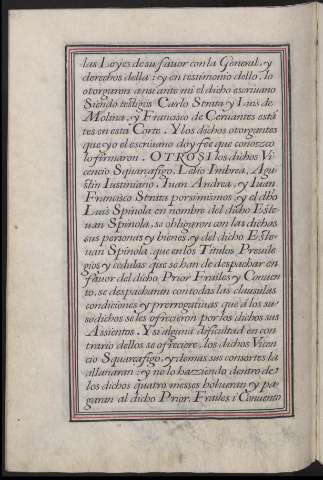 las Leyes de su fauor con la General, y
derechos della: y en testimonio dello, lo
otorgaron ansi ante mi el dicho escriuano
Siendo testigos Carlo Strata y Luis de
Molina, y Francisco de Ceruantes está
tes en esta Corte. Y los dichos otorgantes
que yo el escriuano doy fee que conozco
lo firmaron. OTROSI los dichos Vi
cencio Squarçafigo, Lelio Imbrea, Agu
stin Iustiniano, Iuan Andrea, y Iuan
Francisco Strata por si mismos, y el dho
Luis Spinola en nombre del dicho Este
uan Spinola, se obligaron con las dichas
sus personas y bienes, y del dicho Este
uan Spinola, que en los Titulos Preuile
gios y cedulas que se han de despachar en
fauor del dicho Prior Frailes y Conuen
to, se despacharan con todas las clausulas
condiciones y prerrogatiuas que á los su
sodichos se les ofrecieron por los dichos sus
Assientos. Y si alguna dificultad en con
trario dellos se ofreciere, los dichos Vicen
cio Squarçafigo, y demas sus consortes la
allanaran: y no lo hazziendo dentro de
los dichos quatro messes bolueran y pa
garan al dicho Prior, Frailes i Conuento